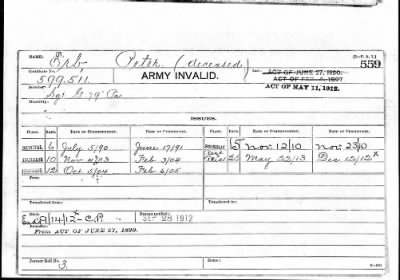 NAME: Erb Peter (deceased)
559
Certificate No. 599.511
ARMY INVALID.
Law: ACT OF JUNE 27, 1890.
ACT OF FEB. 6, 1907
ACT OF MAY 11, 1912.
Service: Sgt G 79 Pa
Disability:
ISSUES.
CLASS. RATE. DATE OF COMMENCEMENT. DATE OF CERTIFICATE. CLASS. RATE. DATE OF COMMENCEMENT. DATE OF CERTIFICATE.
GENERAL 6 July 5/90 June 17/91 REISSUE 15 Nov 12/10 Nov 23/10
INCREASE 10 Nov 4/03 Feb 3/04 25 May 22/13 Dec 12/12 x
INCREASE 12 Oct 5/04 Feb 6/05
Transferred from:
Transferred to:
8/14/12 - C.P. SEP 28 1912
From ACT OF JUNE 27, 1890.
Former Roll No. 3